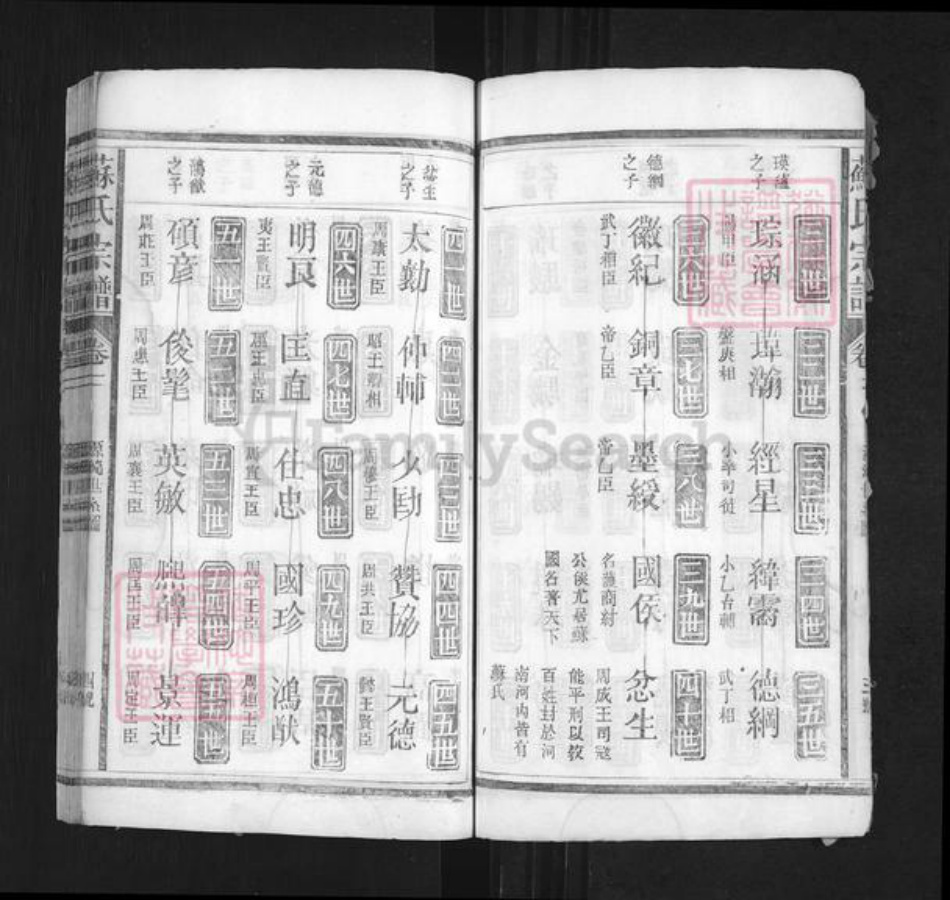 蘇氏宗譜
瑛蘊之子
三一世
琮涵
三二世
琿瀚
盤庚相
三三世
經星
小辛司徒
三四世
緯霱
小乙台輔
三五世
德綱
武丁相
德綱之子
三六世
徽紀
武丁相臣
三七世
銅章
帝乙臣
三八世
墨綬
帝乙臣
三九世
國侯
名藩商紂
公侯尤居蘇
國名著天下
四十世
忿生
周成王司寇
能平刑以教
百姓封於河
南河內皆有
蘇氏
忿生之子
四一世
太勤
周康王臣
四二世
仲輔
昭王賢相
四三世
火勛
四四世
贊協
周共王臣
四五世
元德
懿王賢臣
元德之子
四六世
明良
夷王賢臣
四七世
匡直
四八世
仕忠
周宣王臣
四九世
國珍
周平王臣
五十世
鴻猷
周桓王臣
鴻猷之子
五一世
碩彦
周莊王臣
五二世
俊髦
周惠王臣
五三世
英敏
周襄王臣
五四世
熙韓
五五世
景運
周定王臣
蘇氏宗譜
FamilySearch